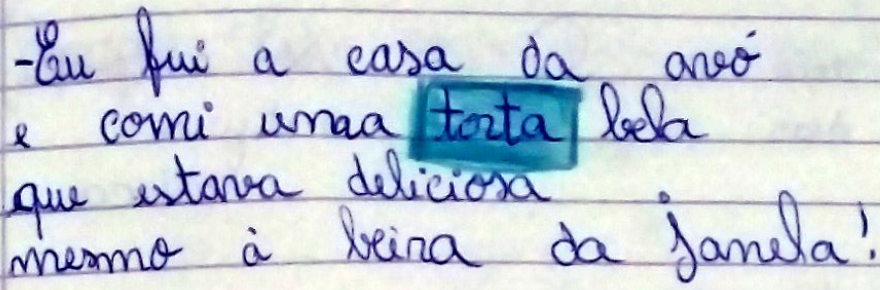 -Eu fui a casa da avó
e comi umaa torta bela
que estava deliciosa
mesmo à beira da janela!